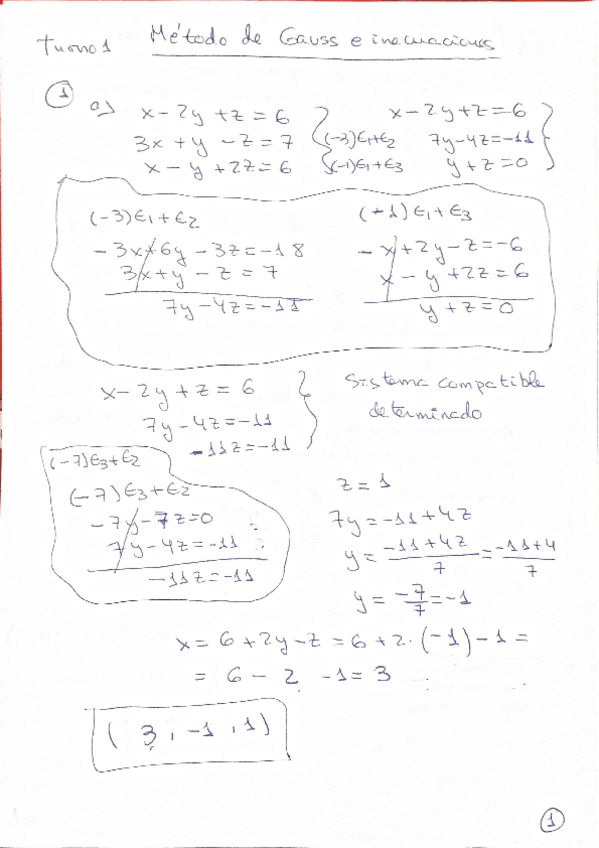 Turno 1 Método de Gauss e inecuaciones
1 a) x - 2y + z = 6 x - 2y + z = 6
3x + y - z = 7 (-3)E1+E2 7y - 4z = -11
x - y + 2z = 6 (-1)E1+E3 y + z = 0
(-3)E1+E2 (-1)E1+E3
-3x + 6y - 3z = -18 - x + 2y - z = -6
3x + y - z = 7 x - y + 2z = 6
7y - 4z = -11 y + z = 0
x - 2y + z = 6 Sistema compatible
7y - 4z = -11 determinado
-11z = -11
(-7)E3+E2
(-7)E3+E2 z = 1
-7y - 7z = 0 7y = -11 + 4z
7y - 4z = -11 y = -11+4z/7 = -11+4/7
-11z = -11
y = -7/7 = -1
x = 6 + 2y - z = 6 + 2·(-1) - 1 =
= 6 - 2 - 1 = 3
(3, -1, 1)
1